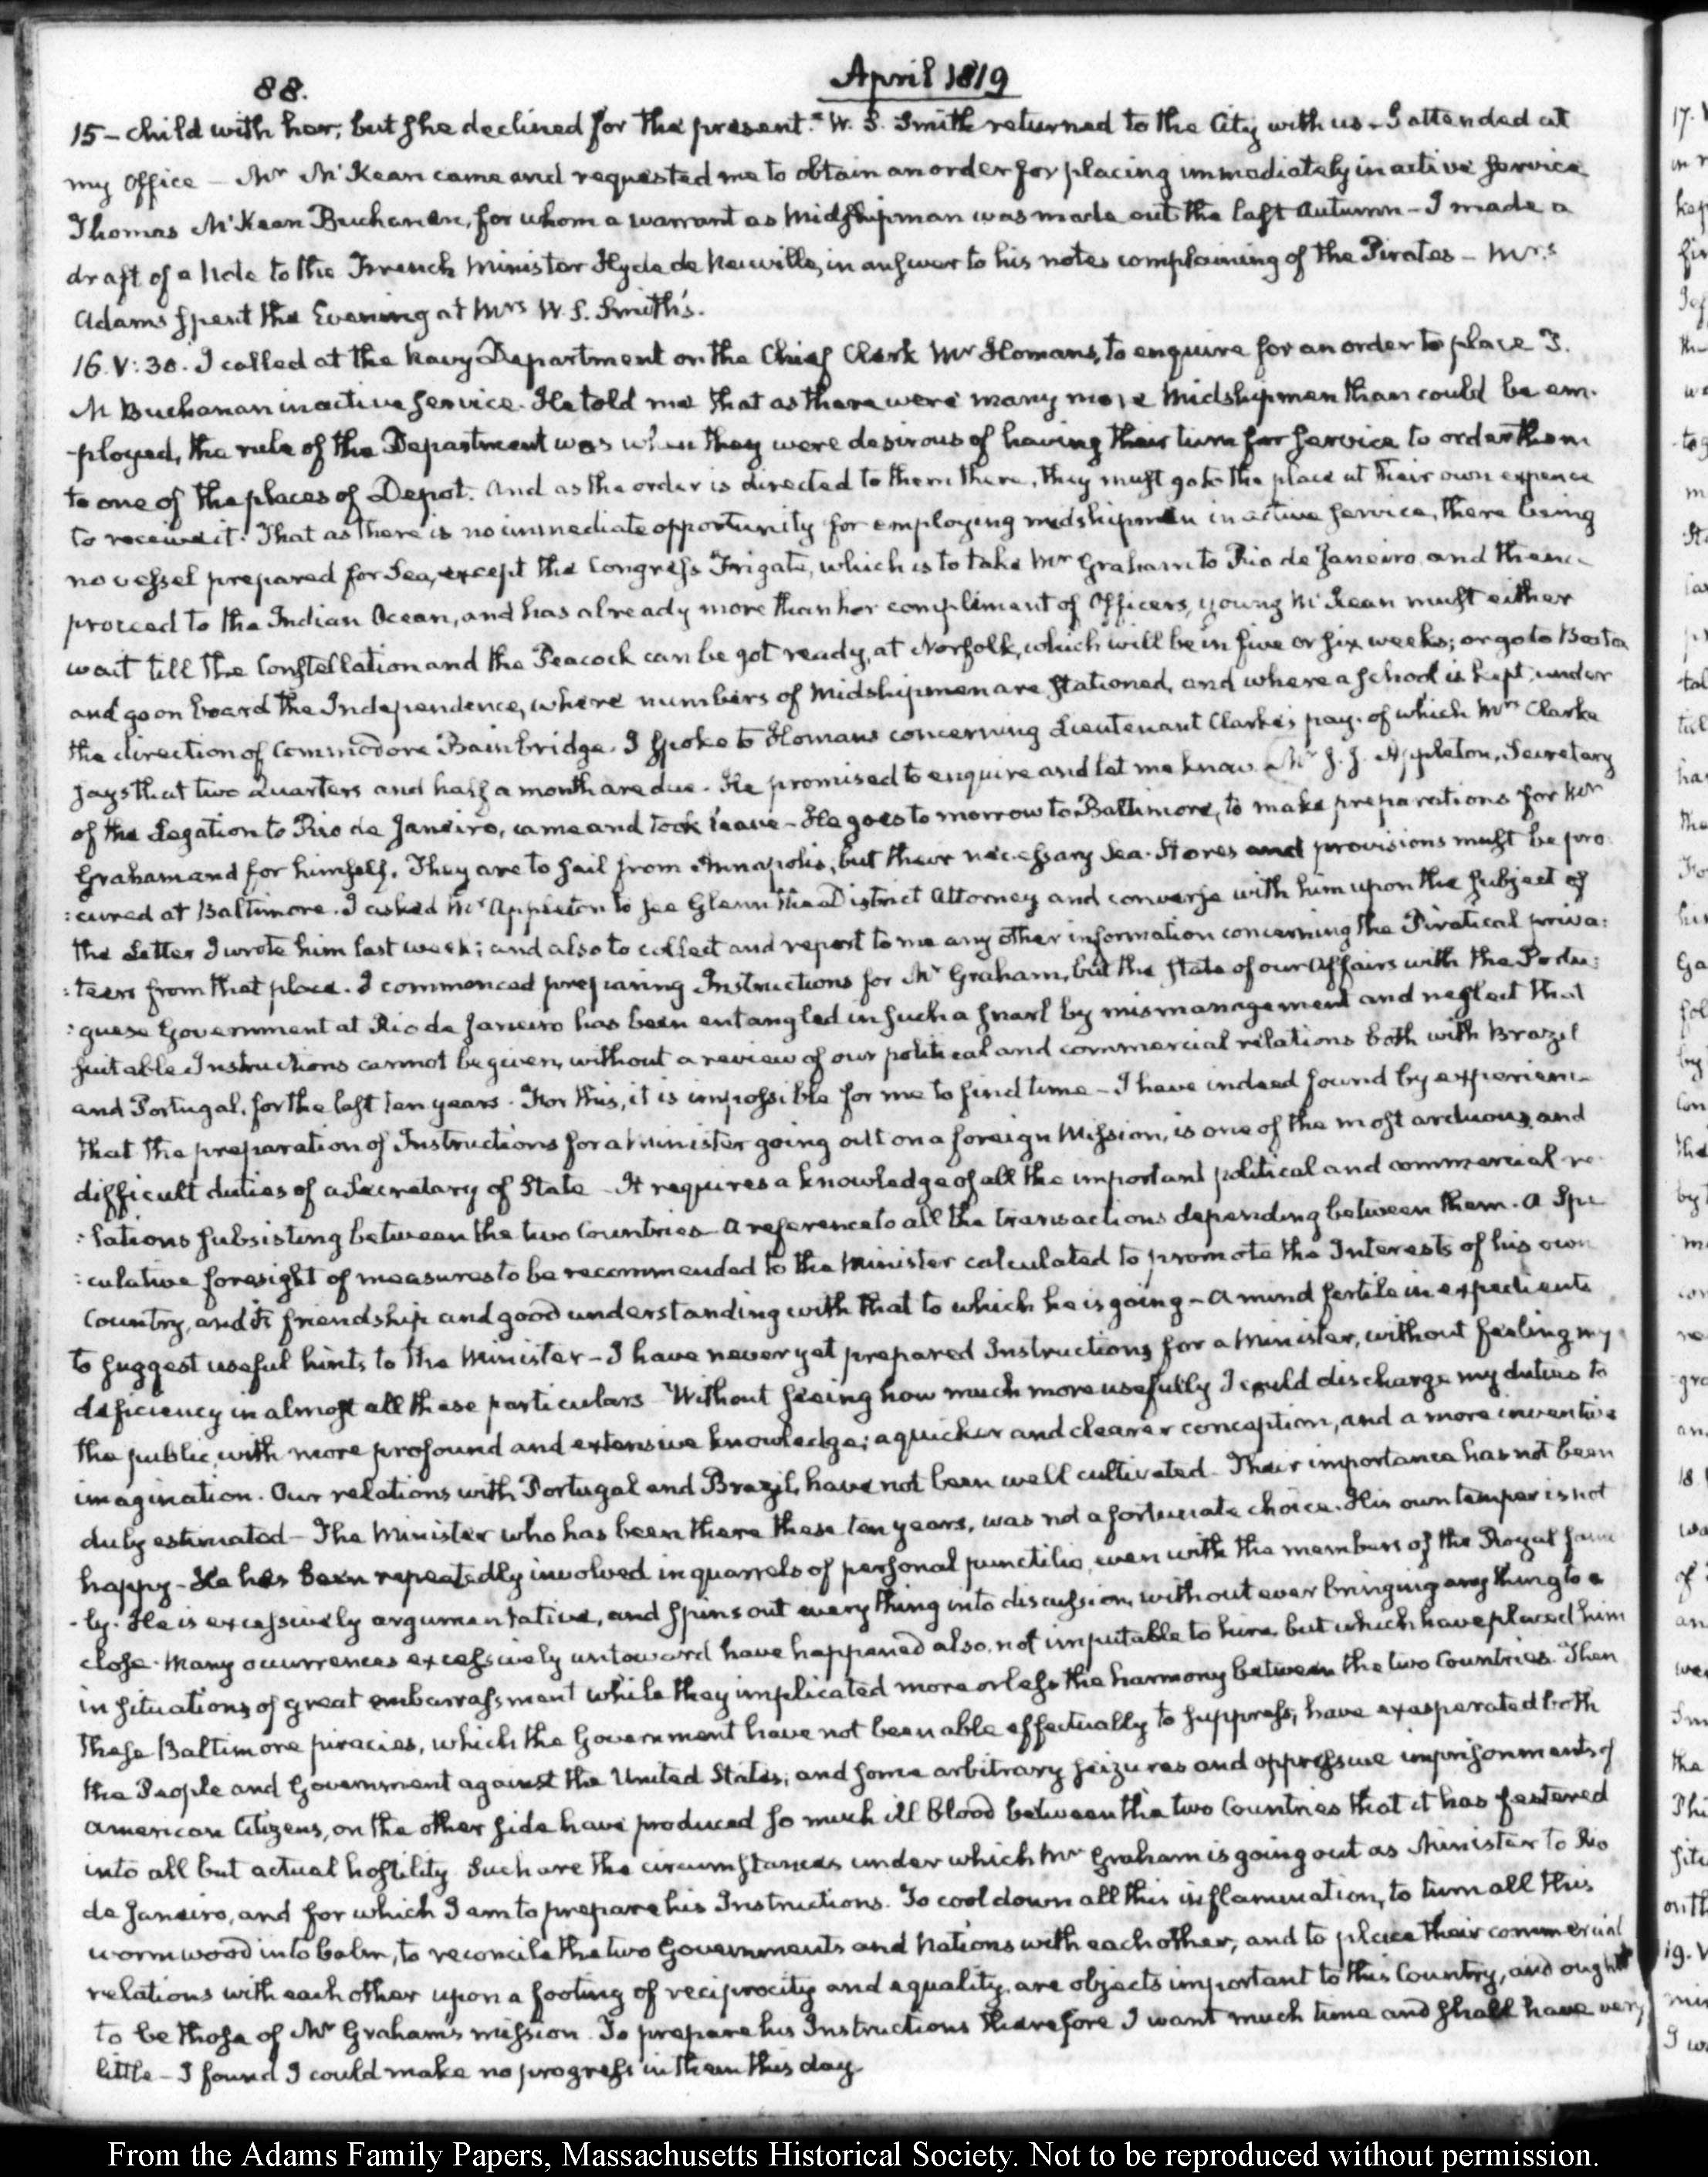 88.
April 1819
15 - child with her, but she declined for the present. W. S. Smith returned to the City with us - I attended at
my Office - Mr McKean came and requested me to obtain an order for placing immediately in active service
Thomas McKean Buchanan, for whom a warrant as Midshipman was made out the last Autumn - I made a
draft of a Note to the French Minister Hyde de Neuville, in answer to his notes complaining of the Pirates - Mrs
Adams spent the Evening at Mrs W. S. Smith's.
16. V: 30. I called at the Navy Department on the Chief Clerk Mr Homans, to enquire for an order to place T.
M Buchanan in active service. He told me that as there were many more Midshipmen than could be em-
-ployed, the rule of the Department was when they were desirous of having their turn for service to order them
to one of the places of Depot. And as the order is directed to them there, they must go to the place at their own expence
to receive it. That as there is no immediate opportunity for employing midshipmen in active service, there being
no vessel prepared for Sea, except the Congress Frigate, which is to take Mr Graham to Rio de Janeiro and thence
proceed to the Indian Ocean, and has already more than her compliment of Officers, young McKean must either
wait till the Constellation and the Peacock can be got ready, at Norfolk, which will be in five or six weeks; or go to Boston
and go on board the Independence, where numbers of Midshipmen are stationed, and where a school is kept, under
the direction of Commodore Bainbridge. I spoke to Homans concerning Lieutenant Clarke's pay, of which Mrs Clarke
says that two Quarters and half a month are due. He promised to enquire and let me know. Mr J. J. Appleton, Secretary
of the Legation to Rio de Janeiro, came and took leave - He goes to morrow to Baltimore, to make preparations for Mr
Graham and for himself. They are to sail from Annapolis, but their necessary Sea-Stores and provisions must be pro
:cured at Baltimore. I asked Mr Appleton to see Glenn the District Attorney and converse with him upon the subject of
the Letter I wrote him last week; and also to collect and report to me any other information concerning the Piratical priva:
:teers from that place. I commenced preparing Instructions for Mr Graham, but the state of our Affairs with the Portu:
:guese Government at Rio de Janeiro has been entangled in such a snarl by mismanagement and neglect that
suitable Instructions cannot be given, without a review of our political and commercial relations both with Brazil
and Portugal, for the last ten years. For this, it is impossible for me to find time - I have indeed found by experience
that the preparation of Instructions for a Minister going out on a foreign Mission, is one of the most arduous and
difficult duties of a Secretary of State - It requires a knowledge of all the important political and commercial re
:lations subsisting between the two Countries - A reference to all the transactions depending between them. A Spe
:culative foresight of measures to be recommended to the Minister calculated to promote the Interests of his own
Country, and its friendship and good understanding with that to which he is going - A mind fertile in expedients
to suggest useful hints to the Minister - I have never yet prepared Instructions for a Minister, without feeling my
deficiency in almost all these particulars - Without seeing how much more usefully I could discharge my duties to
the public, with more profound and extensive knowledge; a quicker and clearer conception, and a more inventive
imagination. Our relations with Portugal and Brazil, have not been well cultivated - Their importance has not been
duly estimated - The Minister who has been there these ten years, was not a fortunate choice. His own temper is not
happy - He has been repeatedly involved in quarrels of personal punctilio, even with the members of the Royal fami
-ly. He is excessively argumentative, and spins out every thing into discussion, without ever bringing any thing to a
close. Many occurrences excessively untoward have happened also, not imputable to him, but which have placed him
in situations of great embarrassment while they implicated more or less the harmony between the two Countries. Then
these Baltimore piracies, which the Government have not been able effectually to suppress, have exasperated both
the People and Government against the United States; and some arbitrary seizures and oppressive imprisonments of
American Citizens, on the other side have produced so much ill blood between the two Countries that it has festered
into all but actual hostility. Such are the circumstances under which Mr Graham is going out as Minister to Rio
de Janeiro, and for which I am to prepare his Instructions. To cool down all this inflammation, to turn all this
wormwood into balm, to reconcile the two Governments and Nations with each other, and to place their commercial
relations with each other upon a footing of reciprocity and equality, are objects important to this Country, and ought
to be those of Mr Graham's mission. To prepare his Instructions therefore I want much time and shall have very
little - I found I could make no progress in them this day.
From the Adams Family Papers, Massachusetts Historical Society. Not to be reproduced without permission.